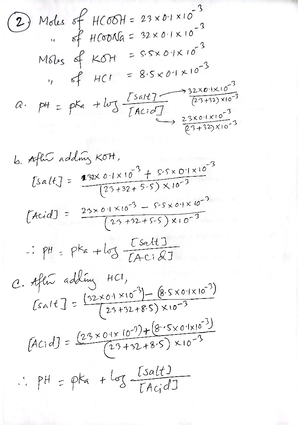 ② Moles of HCOOH = 23×0.1×10⁻³
" of HCOONa = 32×0.1×10⁻³
Moles of KOH = 5.5×0.1×10⁻³
" of HCl = 8.5×0.1×10⁻³
a. pH = pKa + log [Salt] / [Acid] → 32×0.1×10⁻³ / (23+32)×10⁻³
→ 23×0.1×10⁻³ / (23+32)×10⁻³
b. After adding KOH,
[salt] = 32×0.1×10⁻³ + 5.5×0.1×10⁻³ / (23+32+5.5)×10⁻³
[Acid] = 23×0.1×10⁻³ − 5.5×0.1×10⁻³ / (23+32+5.5)×10⁻³
∴ pH = pKa + log [Salt] / [Acid]
C. After adding HCl,
[salt] = (32×0.1×10⁻³) − (8.5×0.1×10⁻³) / (23+32+8.5)×10⁻³
[Acid] = (23×0.1×10⁻³) + (8.5×0.1×10⁻³) / (23+32+8.5)×10⁻³
∴ pH = pKa + log [salt] / [Acid]